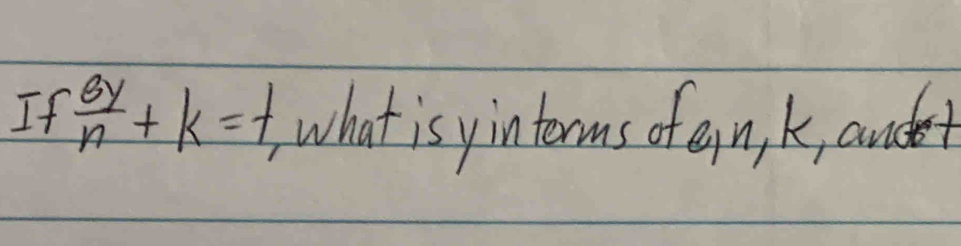 If ey/n + k = t, what is y in terms of e, n, k, and t